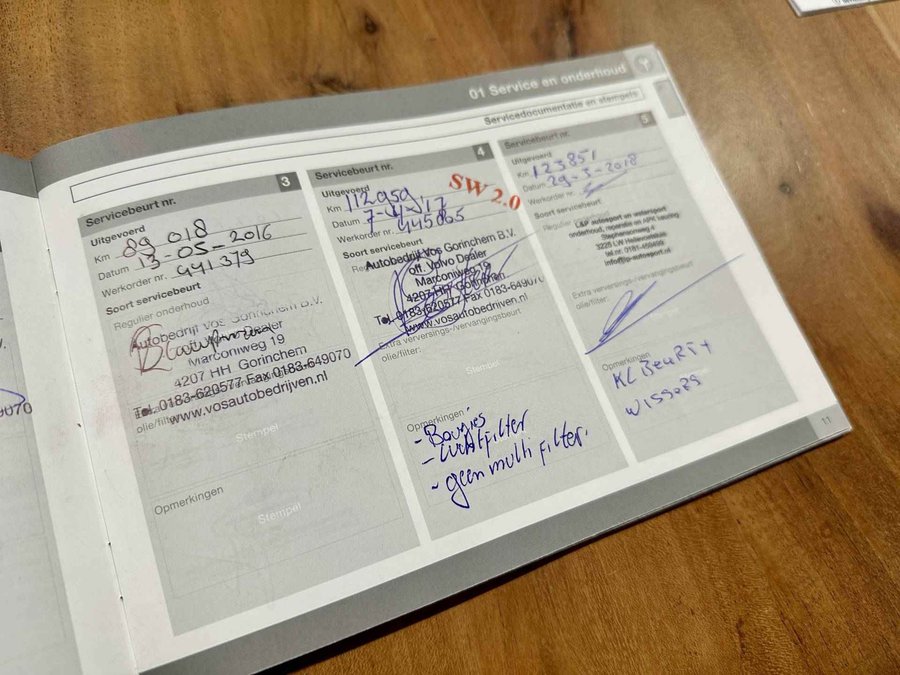 01 Service en onderhoud
Servicedocumentatie en stempels
Servicebeurt nr. 3
Uitgevoerd
Km 89 018
Datum 13-05-2016
Werkorder nr. 441379
Soort servicebeurt
Regulier onderhoud
Autobedrij Vos Gorinchem B.V.
Dealer
Marconiweg 19
4207 HH Gorinchem
Tel. 0183-620577 Fax 0183-649070
www.vosautobedrijven.nl
olie/filter:
Stempel
Opmerkingen
Stempel
Servicebeurt nr. 4
Uitgevoerd
SW 2.0
Km 112959
Datum 7-4-'17
Werkorder nr. 445805
Soort servicebeurt
Autobedrijf Vos Gorinchem B.V.
off. Volvo Dealer
Marconiweg 19
4207 HH Gorinchem
Tel. 0183-620577 Fax 0183-6490
www.vosautobedrijven.nl
Extra verversings-/vervangingsbeurt
olie/filter:
Stempel
Opmerkingen
- Bougies
- Luchtfilter
- geen multi filter.
Servicebeurt nr. 5
Uitgevoerd
Km 123851
Datum 29-3-2018
Werkorder nr.
Soort servicebeurt
Regulier
L&P autosport en watersport
onderhoud, reparatie en APK keuring
3225 LW Hellevoetsluis
Extra verversings-/vervangingsbeurt
olie/filter:
Stempel
Opmerkingen
KL BEURT +
WISSERS
11
070